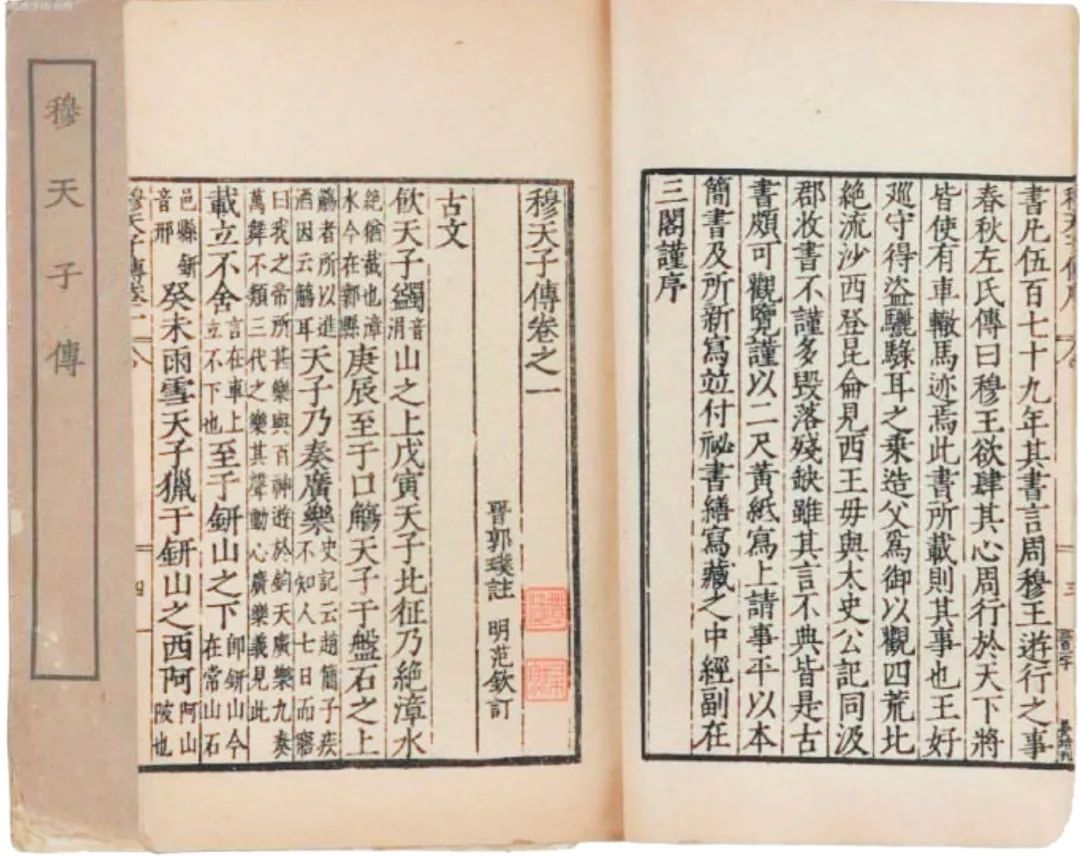 穆天子傳
書凡伍百七十九年其書言周穆王遊行之事
春秋左氏傳曰穆王欲肆其心周行於天下將
皆使有車轍馬迹焉此書所載則其事也王好
巡守得盗驪騄耳之乘造父為御以觀四荒北
絶流沙西登昆侖見西王毋與太史公記同汲
郡收書不謹多毀落殘缺雖其言不典皆是古
書頗可觀覽謹以二尺黃紙寫上請事平以本
簡書及所新寫並付祕書繕寫藏之中經副在
三閣謹序
三
穆天子傳卷之一
晉郭璞註 明范欽訂
古文
飲天子蠲音涓山之上戊寅天子北征乃絶漳水
絶猶截也漳水今在鄴縣庚辰至于口觴天子于盤石之上
觴者所以進酒因云觴耳天子乃奏廣樂史記云趙簡子疾不知人七日而寤
曰我之帝所甚樂與百神遊於鈞天廣樂九奏萬舞不類三代之樂其聲動心廣樂義見此
載立不舍言在車上立不下也至于鈃山之下即鈃山今在常山石
邑縣鈃音邢癸未雨雪天子獵于鈃山之西阿阿山陵也
穆天子傳卷一
四